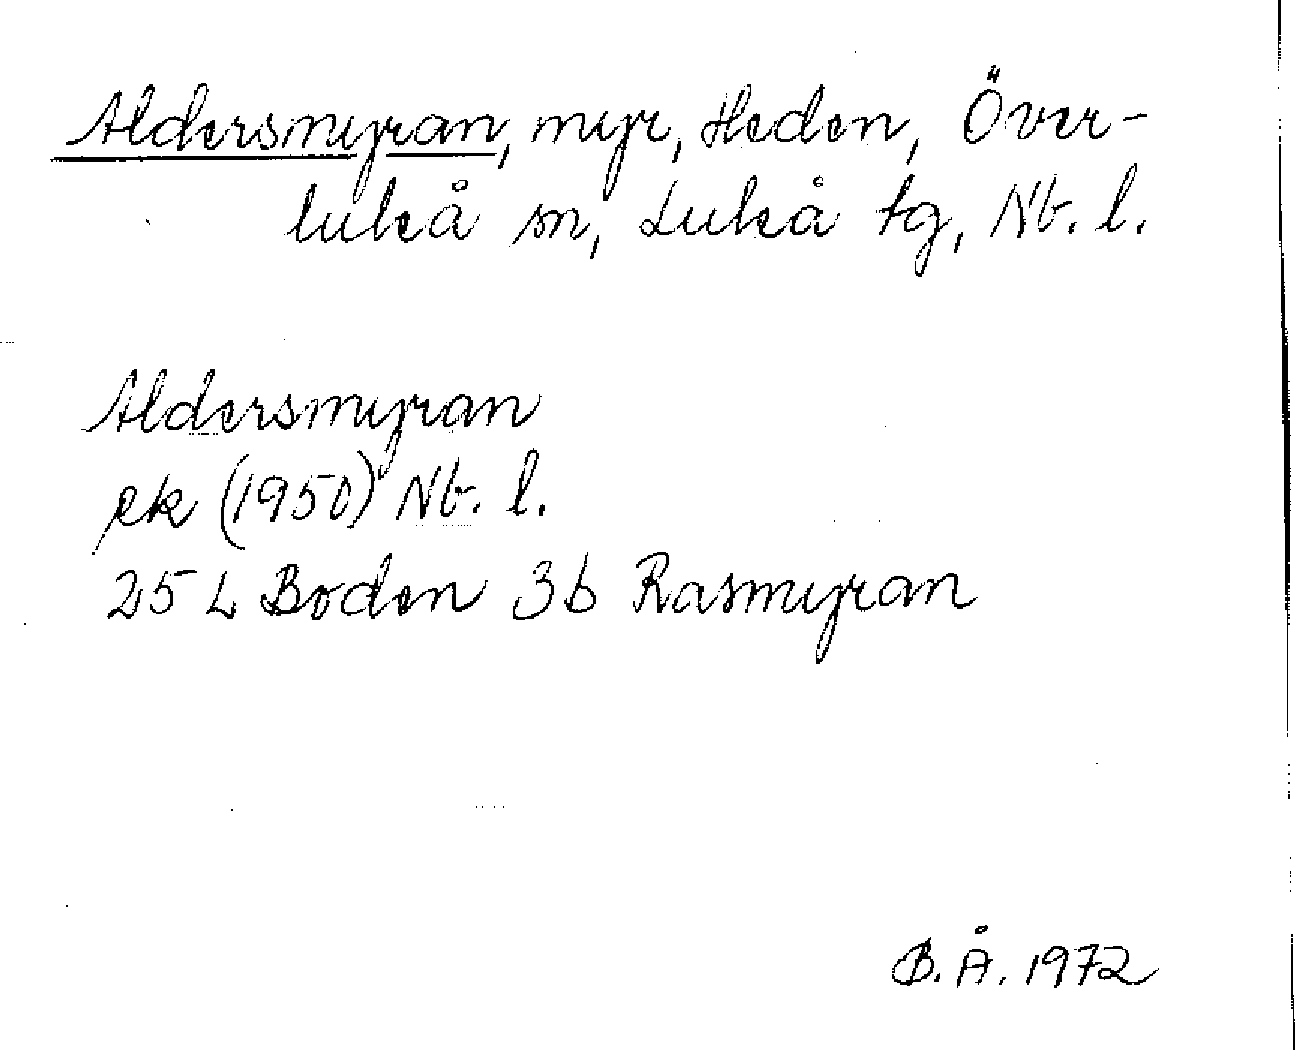 Aldersmyran, myr, Heden, Över-
luleå sn, Luleå tg, Nb. l.
Aldersmyran
ek (1950) Nb. l.
25 L Boden 3b Rasmyran
B. Å. 1972